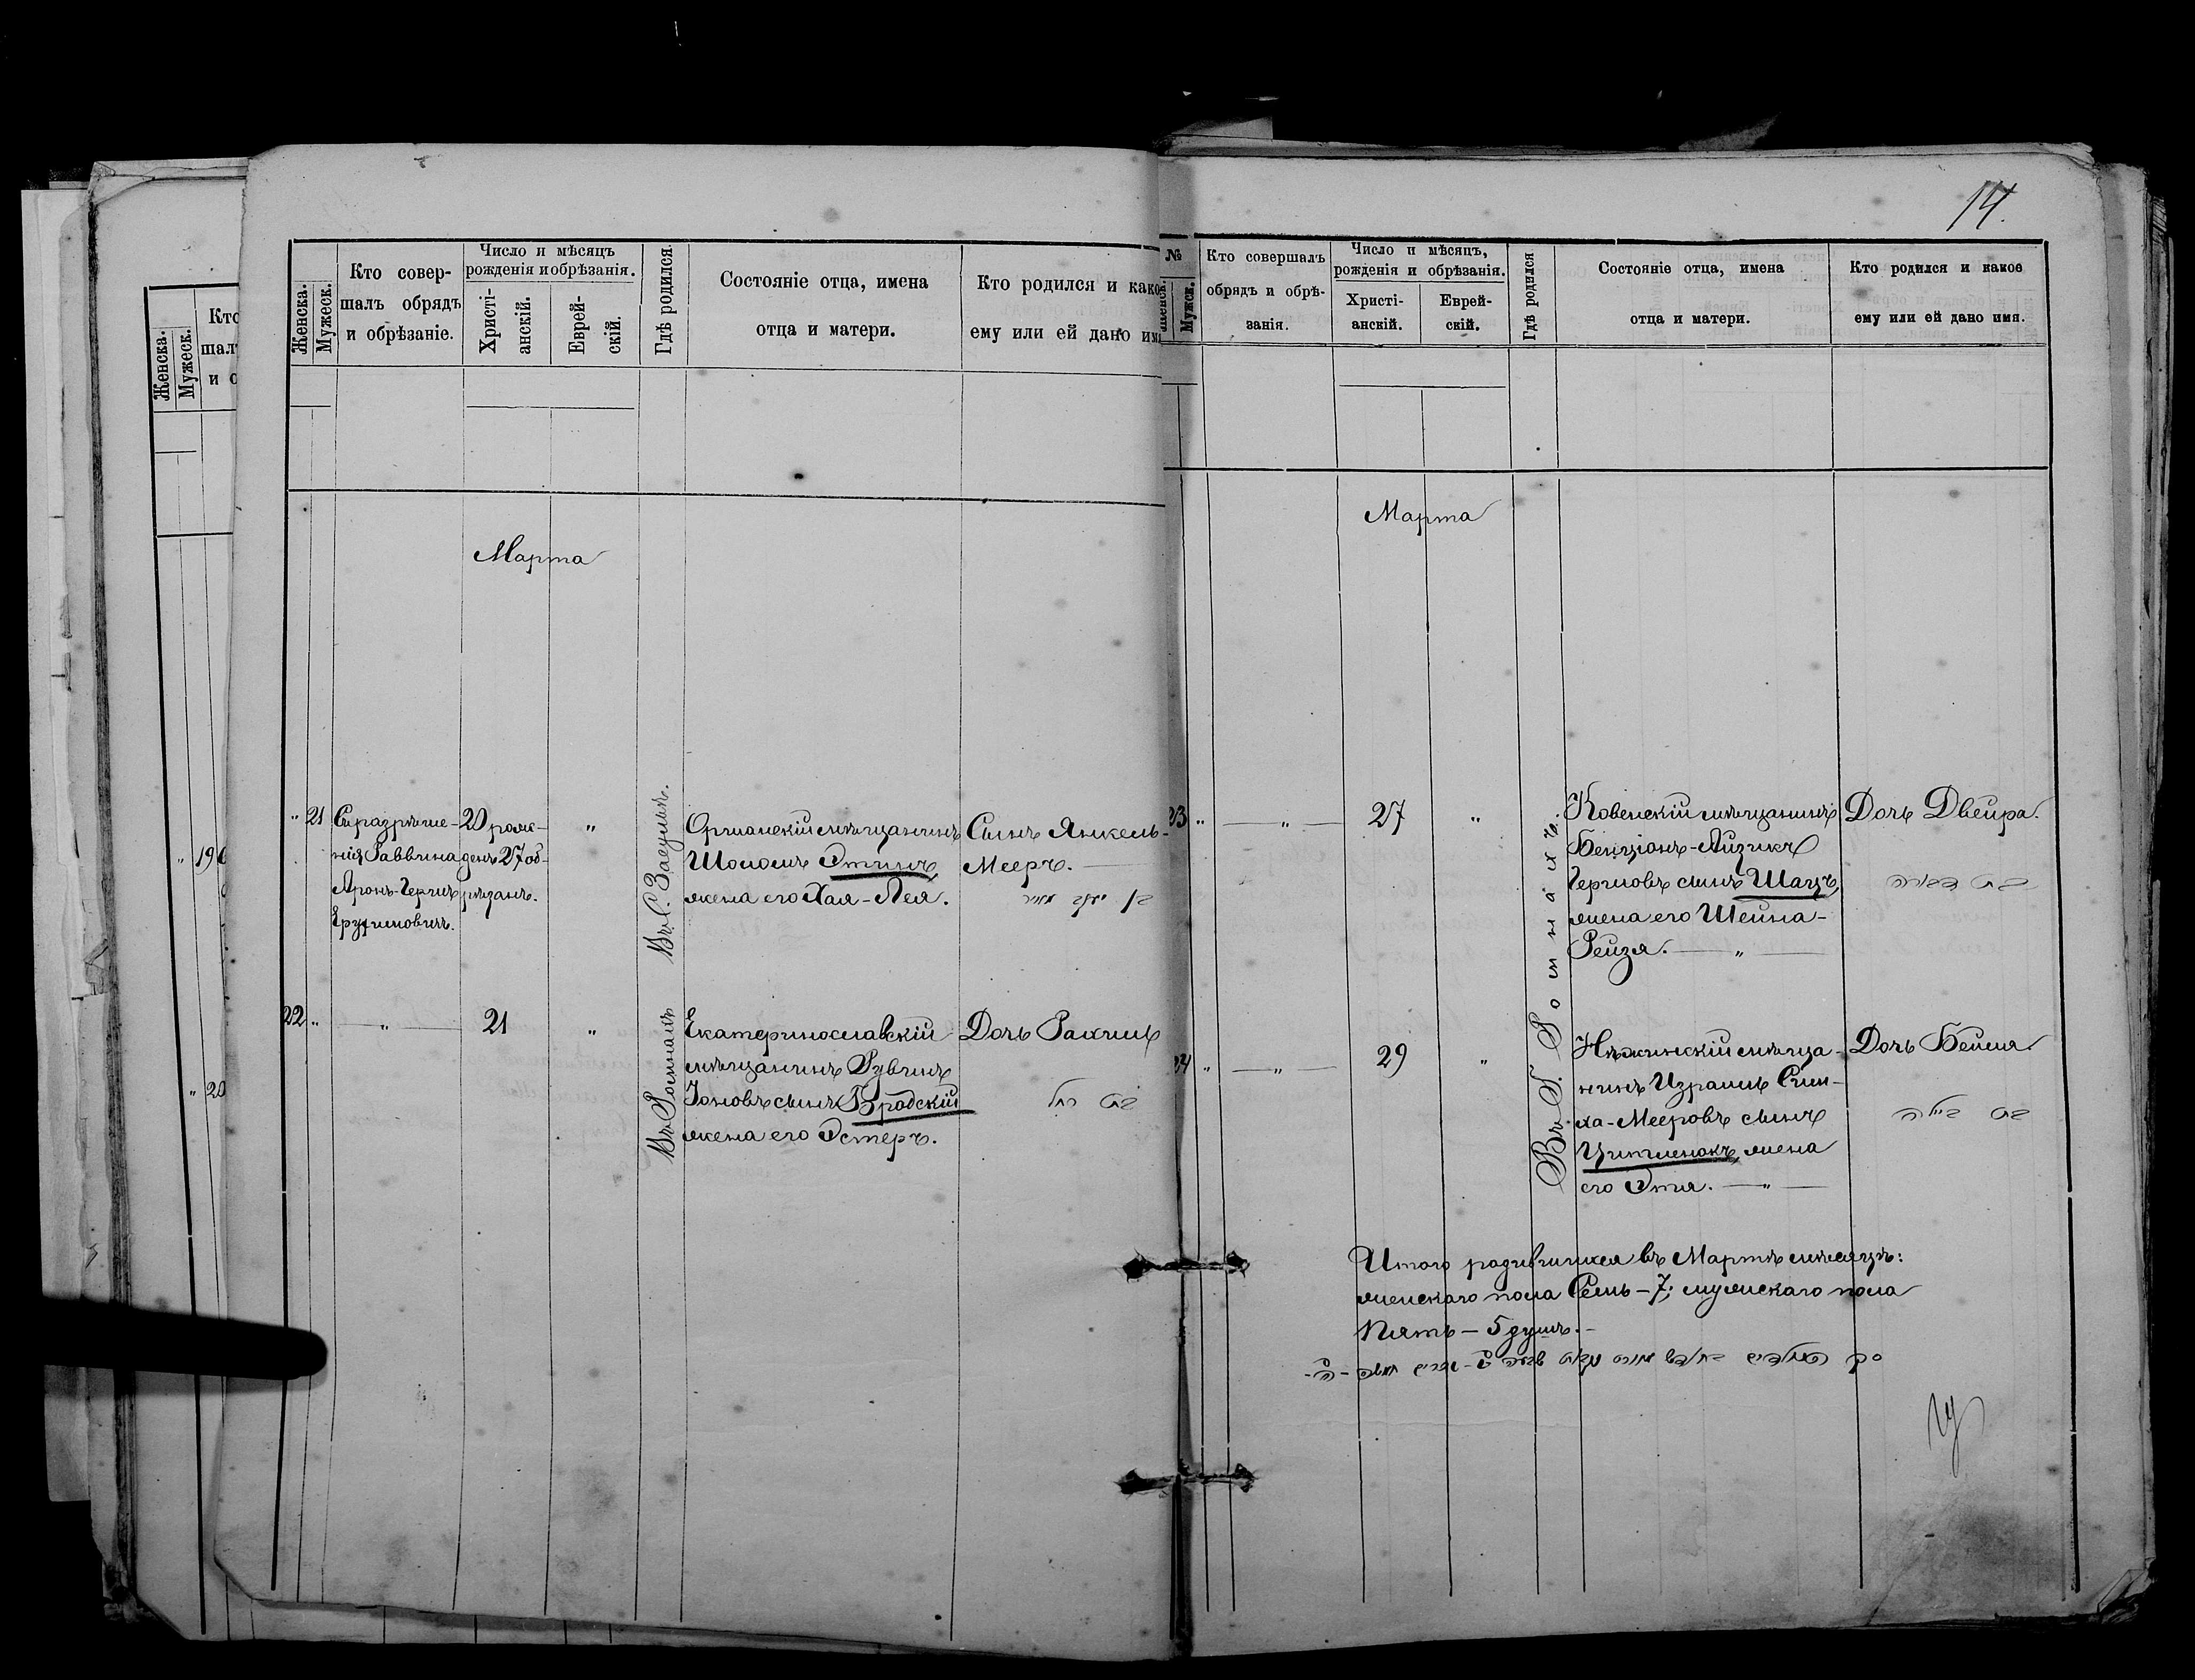 14.
Женска.
Мужеск.
Кто совер-
шалъ обрядъ
и обрѣзаніе.
Число и мѣсяцъ
рожденія и обрѣзанія.
Христі-
анскій.
Еврей-
скій.
Гдѣ родился.
Состояніе отца, имена
отца и матери.
Кто родился и како
ему или ей дано им
Марта
" 21
Съ разрѣше-
нія Раввина
Аронъ-Герцъ
20 рож-
денъ 27 об-
рѣзанъ.
"
Въ С. Засульѣ.
Оршанскій мѣщанинъ
Шоломъ Этинъ,
жена его Хая-Лея.
Сынъ Янкель-
Мееръ.
בן יעקב מאיר
22 "
"
21
"
Въ Ромнахъ
Екатеринославскій
мѣщанинъ Рувинъ
Іоновъ сынъ Бродскій
жена его Эстеръ.
Дочь Рахиль
בת רחל
" 19
" 20
№
Женск.
Мужск.
Кто совершалъ
обрядъ и обрѣ-
занія.
Число и мѣсяцъ,
рожденія и обрѣзанія.
Христі-
анскій.
Еврей-
скій.
Гдѣ родился
Состояніе отца, имена
отца и матери.
Кто родился и какое
ему или ей дано имя.
Марта
23 "
"
27
"
Въ Г. Ромнахъ.
Ковенскій мѣщанинъ
Бенціонъ-Айзикъ
Герцовъ сынъ Шацъ,
жена его Шейна-
Рейзя. "
Дочь Двейра.
בת דבורה
24 "
"
29
"
Нѣжинскій мѣща-
нинъ Израиль Сим-
ха-Мееровъ сынъ
Цитленокъ, жена
его Этя. "
Дочь Бейля.
בת ביילה
Итого родившихся въ Мартѣ мѣсяцѣ:
женскаго пола Семь - 7; мужскаго пола
Пять - 5 душъ.